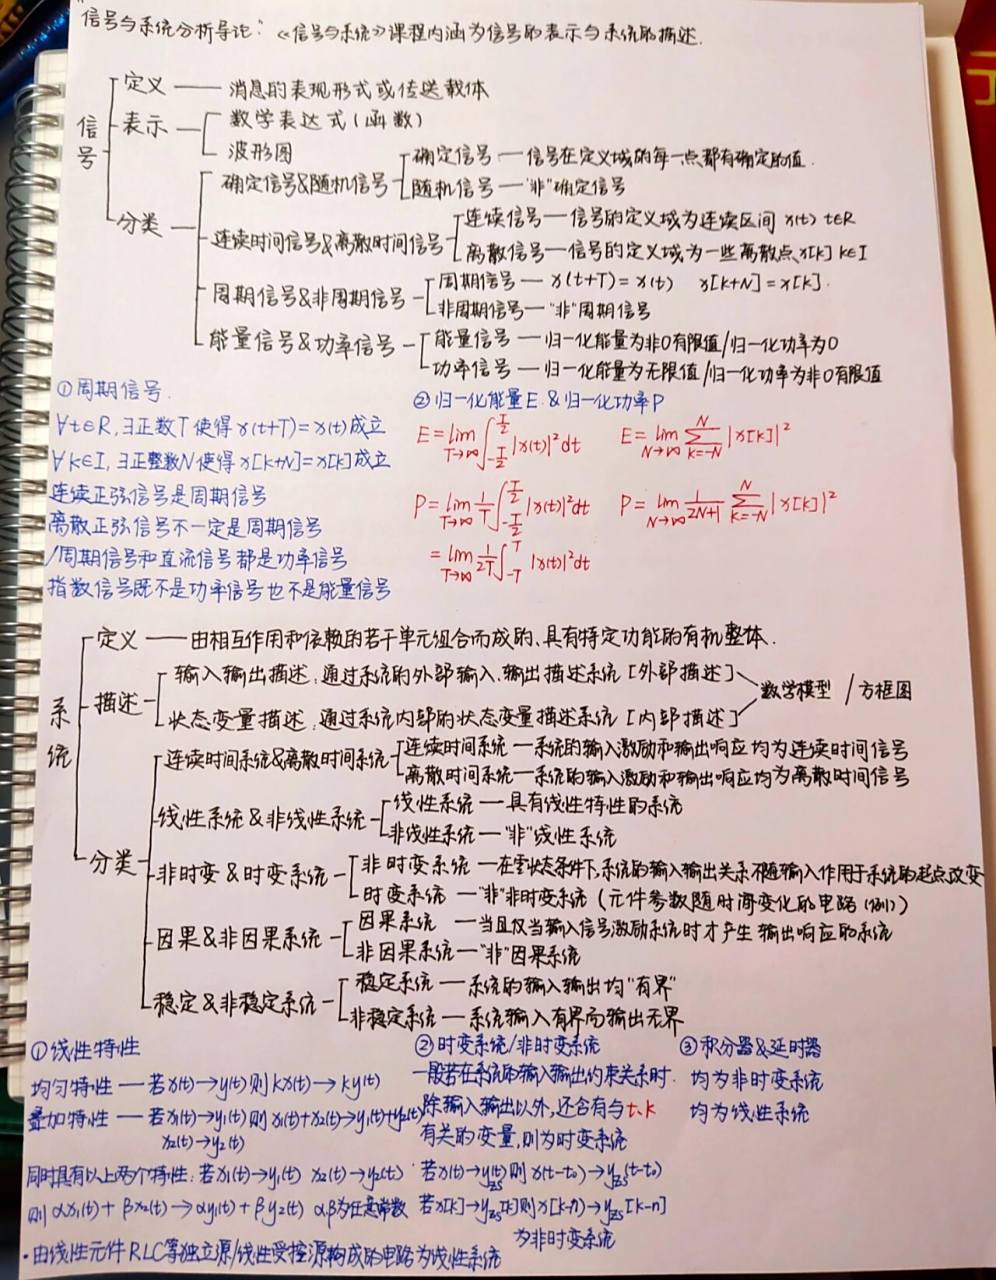 "信号与系统分析导论": 《信号与系统》课程内涵为信号的表示与系统的描述.
信号
定义 —— 消息的表现形式或传送载体
表示 — 数学表达式(函数)
波形图
分类
确定信号&随机信号 — 确定信号 — 信号在定义域的每一点都有确定的值.
随机信号 — "非"确定信号
连续时间信号&离散时间信号 — 连续信号 — 信号的定义域为连续区间 x(t) t∈R
离散信号 — 信号的定义域为一些离散点 x[k] k∈I
周期信号&非周期信号 — 周期信号 — x(t+T)=x(t) x[k+N]=x[k].
非周期信号 — "非"周期信号
能量信号&功率信号 — 能量信号 — 归一化能量为非0有限值/归一化功率为0
功率信号 — 归一化能量为无限值/归一化功率为非0有限值
①周期信号.
∀t∈R,∃正数T使得x(t+T)=x(t)成立
∀k∈I,∃正整数N使得x[k+N]=x[k]成立
连续正弦信号是周期信号
离散正弦信号不一定是周期信号
/周期信号和直流信号都是功率信号
指数信号既不是功率信号也不是能量信号
②归一化能量E & 归一化功率P
E=lim T→∞ ∫-T/2 T/2 |x(t)|²dt E=lim N→∞ N∑k=-N |x[k]|²
P=lim T→∞ 1/T ∫-T/2 T/2 |x(t)|²dt P=lim N→∞ 1/2N+1 N∑k=-N |x[k]|²
=lim T→∞ 1/2T ∫-T T |x(t)|²dt
系统
定义 —— 由相互作用和依赖的若干单元组合而成的、具有特定功能的有机整体.
描述 — 输入输出描述:通过系统的外部输入、输出描述系统[外部描述]
状态变量描述:通过系统内部的状态变量描述系统[内部描述]
数学模型 / 方框图
分类
连续时间系统&离散时间系统 — 连续时间系统 — 系统的输入激励和输出响应均为连续时间信号
离散时间系统 — 系统的输入激励和输出响应均为离散时间信号
线性系统&非线性系统 — 线性系统 — 具有线性特性的系统
非线性系统 — "非"线性系统
非时变&时变系统 — 非时变系统 — 在零状态条件下,系统的输入输出关系不随输入作用于系统的起点改变
时变系统 — "非"非时变系统(元件参数随时间变化的电路(例))
因果&非因果系统 — 因果系统 — 当且仅当输入信号激励系统时才产生输出响应的系统
非因果系统 — "非"因果系统
稳定&非稳定系统 — 稳定系统 — 系统的输入输出均"有界"
非稳定系统 — 系统输入有界而输出无界
①线性特性
均匀特性 — 若x(t)→y(t)则kx(t)→ky(t)
叠加特性 — 若x₁(t)→y₁(t)则x₁(t)+x₂(t)→y₁(t)+y₂(t)
x₂(t)→y₂(t)
同时具有以上两个特性:若x₁(t)→y₁(t) x₂(t)→y₂(t)
则αx₁(t)+βx₂(t)→αy₁(t)+βy₂(t) α,β为任意常数
·由线性元件RLC等独立源/线性受控源构成的电路为线性系统
②时变系统/非时变系统
一般若在系统的输入输出约束关系时.
除输入输出以外,还含有与t、k
有关的变量,则为时变系统
若x(t)→yzs(t)则x(t-t₀)→yzs(t-t₀)
若x[k]→yzs[k]则x[k-n)→yzs[k-n]
为非时变系统
③积分器&延时器
均为非时变系统
均为线性系统